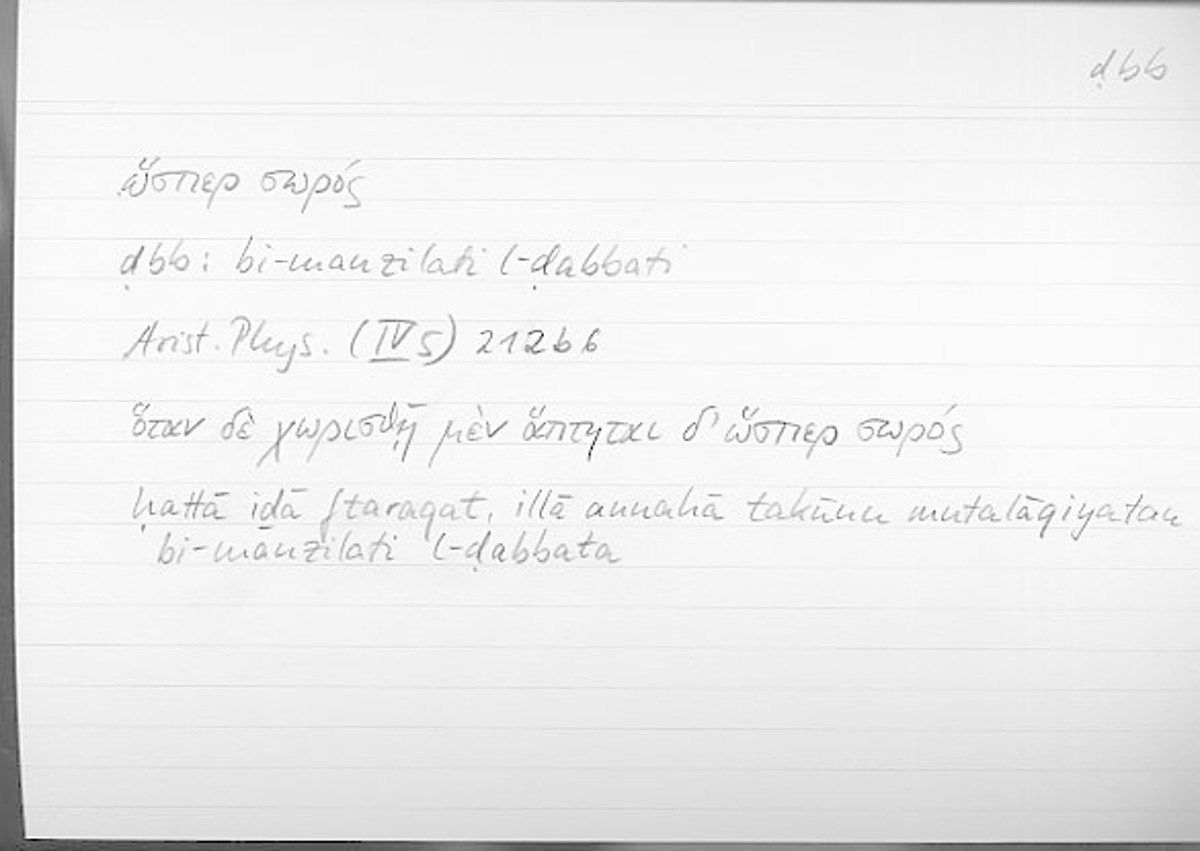 ḍbb
ὥσπερ σωρός
ḍbb: bi-manzilati l-ḍabbati
Arist. Phys. (IV 5) 212 b 6
ὅταν δὲ χωρισθῇ μὲν ἅπτηται δ' ὥσπερ σωρός
ḥattā iḏā ftaraqat, illā annahā takūnu mutalāqiyatan
bi-manzilati l-ḍabbata